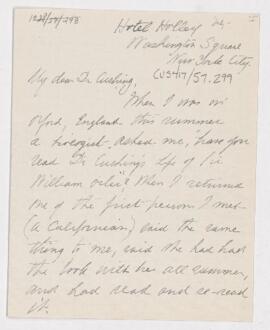 Hotel Holley
Washington Square
New York City.
CUS417/57.299
My dear Dr Cushing,
When I was in
Oxford, England this summer
a zoologist asked me, "have you
read Dr Cushing's life of Sir
William Osler"? When I returned
one of the first persons I met
(a Californian) said the same
thing to me, said she had had
the book with her all summer,
and had read and re-read
it.